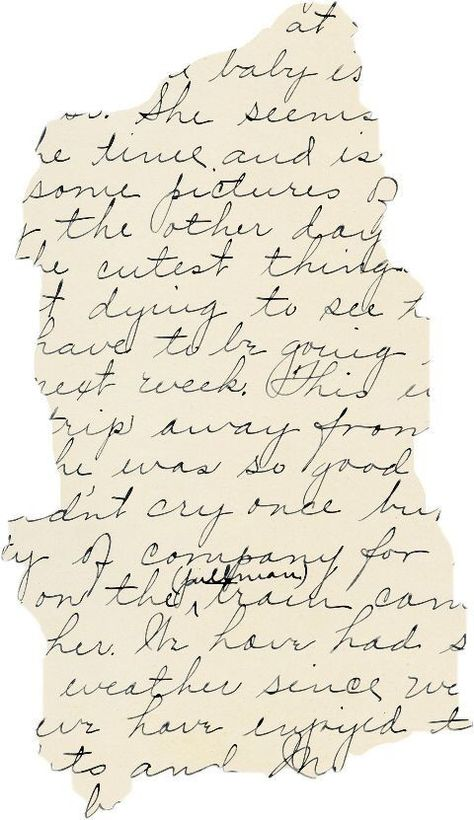 at
baby is
so. She seems
he time and is
some pictures o
the other day
he cutest thing.
t dying to see h
have to be going
next week. This i
trip away from
he was so good
dn't cry once bu
ty of company for
on the (pullman) train cam
her. We have had s
weather since we
we have enjoyed t
ts and Th
b